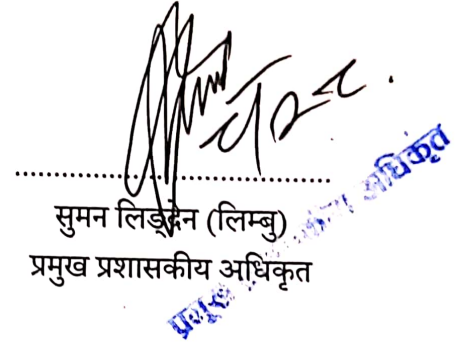 सुमन लिङ्देन (लिम्बु)
प्रमुख प्रशासकीय अधिकृत
प्रमुख अधिकृत